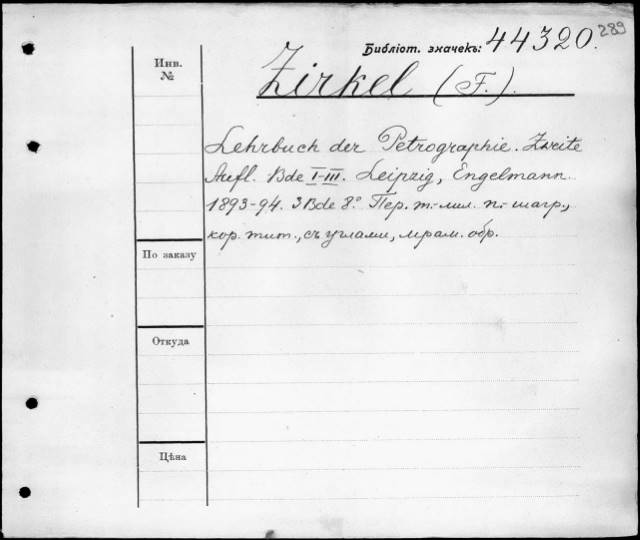 289
Библіот. значекъ: 44320.
Zirkel (F.).
Инв.
№
Lehrbuch der Petrographie. Zweite
Aufl. Bde I-III. Leipzig, Engelmann.
1893-94. 3 Bde 8.° Пер. т.-лил. п.-шагр.,
кор. тит., съ углами, мрам. обр.
По заказу
Откуда
Цѣна